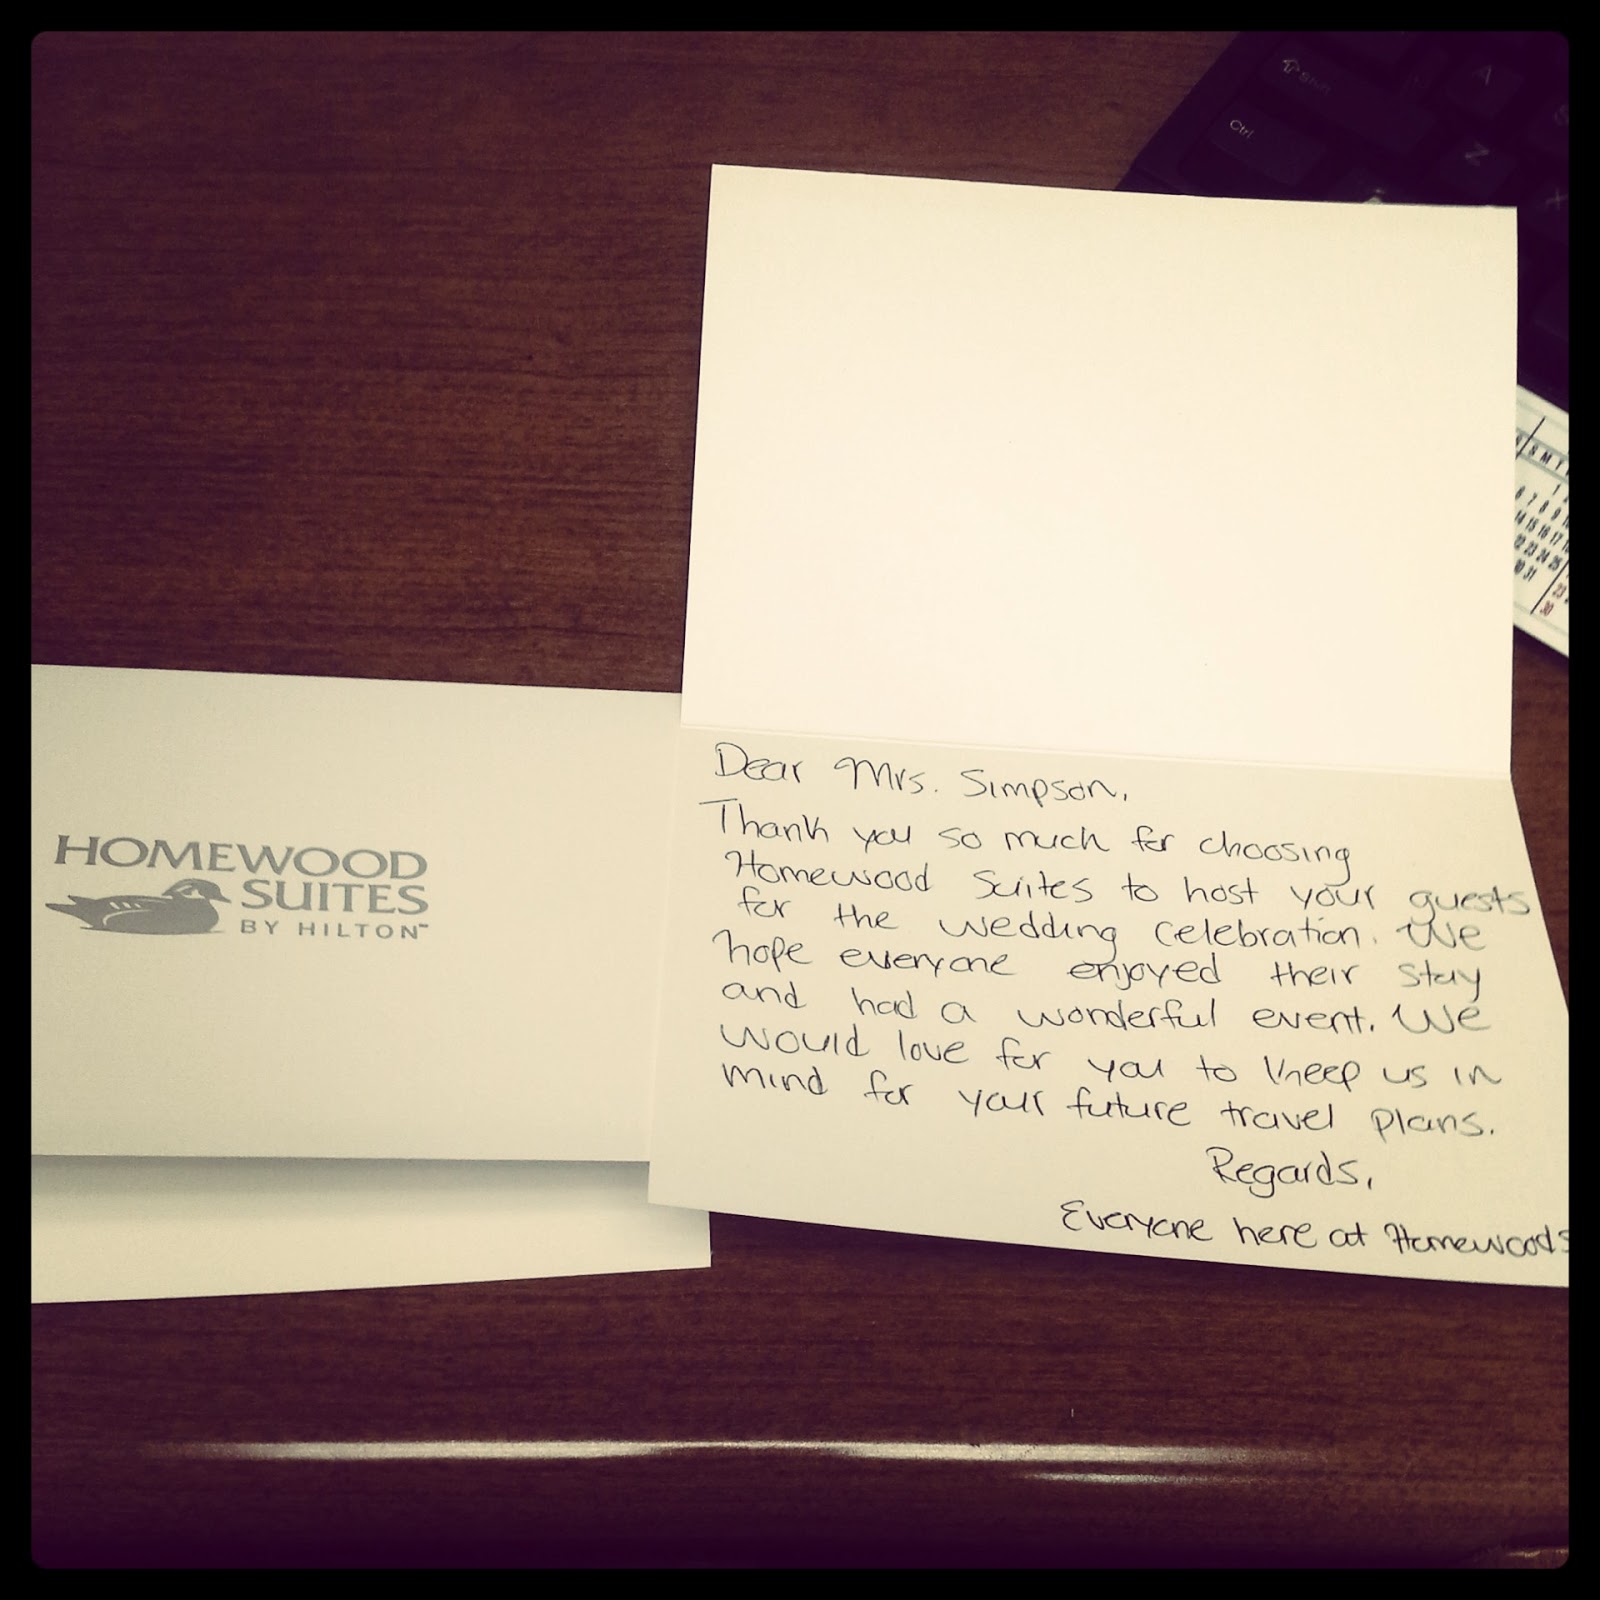 Shift
A
Ctrl
Z
X
S M T
1
6 7 8 9
14 15 16 17
23 24 25
31
23
30
HOMEWOOD
SUITES
BY HILTON™
Dear Mrs. Simpson,
Thank you so much for choosing
Homewood Suites to host your guests
for the wedding celebration. We
hope everyone enjoyed their stay
and had a wonderful event. We
would love for you to keep us in
mind for your future travel plans.
Regards,
Everyone here at Homewoods